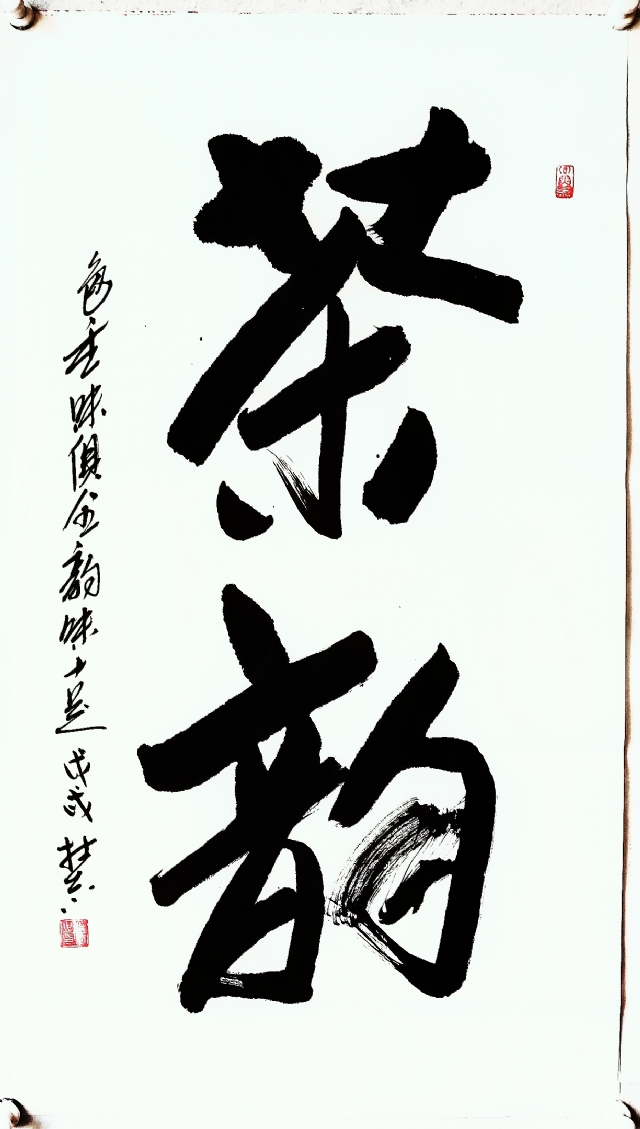 茶韵
色香味俱全韵味十足戊戌